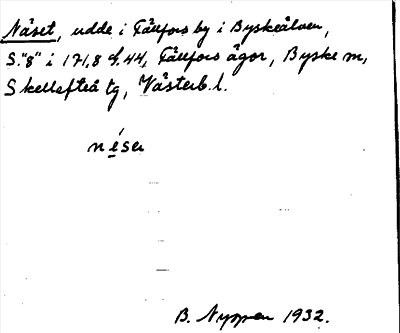 Näset, udde i Fällfors by i Byskeälven,
S."8" i 171,8 d. 44, Fällfors ägor, Byske sn,
Skellefteå tg, Västerb. l.
néser
B. Nyman 1932.